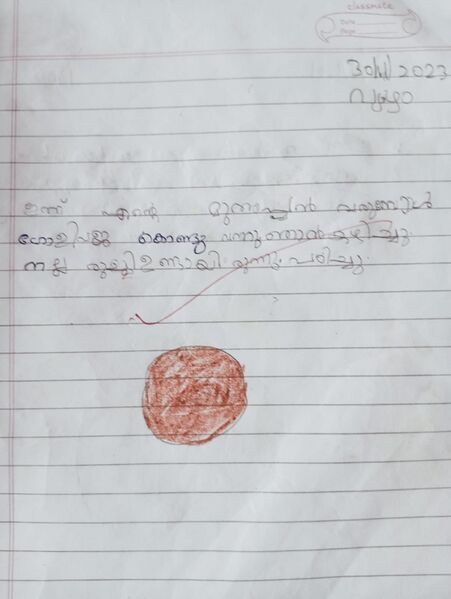 classmate
Date
Page
30/11/2023
വ്യാഴം
ഇന്ന് എന്റെ മുത്തച്ഛൻ വരുമ്പോൾ
ഗോളിബജ്ജ കൊണ്ടു വന്നു ഞാൻ കഴിച്ചു
നല്ല രുചി ഉണ്ടായിരുന്നു